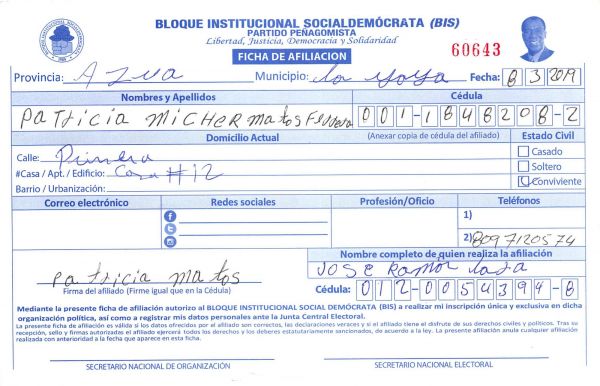 BLOQUE INSTITUCIONAL SOCIALDEMÓCRATA (BIS)
PARTIDO PEÑAGOMISTA
Libertad, Justicia, Democracia y Solidaridad
FICHA DE AFILIACION
60643
Provincia: AZUA Municipio: La Yaya Fecha: 8 3 2019
Nombres y Apellidos Cédula
PATRICIA MICHER Matos 001-1848208-2
Domicilio Actual (Anexar copia de cédula del afiliado) Estado Civil
Calle: Primera Casado
#Casa / Apt. / Edificio: Casa #12 Soltero
Barrio / Urbanización: Conviviente
Correo electrónico Redes sociales Profesión/Oficio Teléfonos
1)
2) 8097120574
Nombre completo de quien realiza la afiliación
patricia matos JOSE Ramon
Firma del afiliado (Firme igual que en la Cédula) Cédula: 012-0054394-8
Mediante la presente ficha de afiliación autorizo al BLOQUE INSTITUCIONAL SOCIAL DEMÓCRATA (BIS) a realizar mi inscripción única y exclusiva en dicha
organización política, así como a registrar mis datos personales ante la Junta Central Electoral.
La presente ficha de afiliación es válida si los datos ofrecidos por el afiliado son correctos, las declaraciones veraces y si el afiliado tiene el disfrute de sus derechos civiles y políticos. Tras su
recepción, sello y firmas autorizadas el afiliado ejercerá todos los derechos y los deberes estatutariamente sancionados, de acuerdo a la ley. La presente afiliación anula cualquier afiliación
realizada con anterioridad a la fecha que aparece en esta ficha.
SECRETARIO NACIONAL DE ORGANIZACIÓN SECRETARIO NACIONAL ELECTORAL